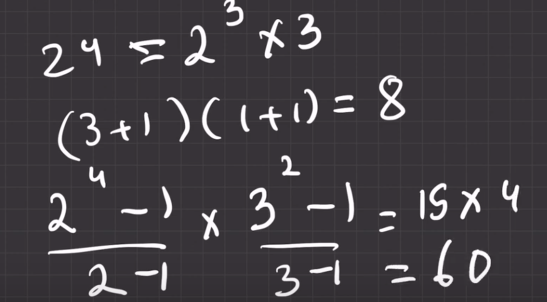 24 = 2³ × 3
(3+1)(1+1) = 8
(2⁴ - 1)/(2 - 1) × (3² - 1)/(3 - 1) = 15 × 4
= 60